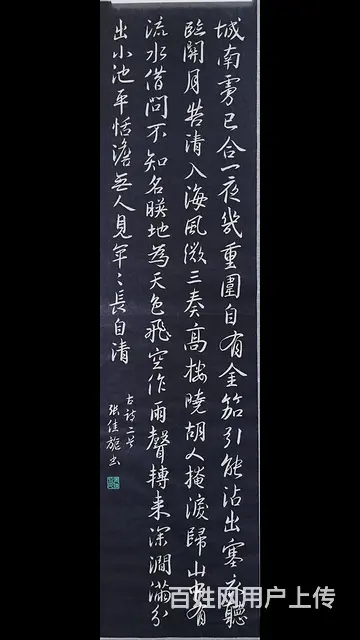 城南虜已合一夜幾重圍自有金笳引能沾出塞衣聽
臨關月苦清入海風微三奏高樓曉胡人掩淚歸山中有
流水借問不知名暎地為天色飛空作雨聲轉来深澗滿分
出小池平恬澹無人見年〻長自清
古詩二首
張佳旎書
百姓网用户上传